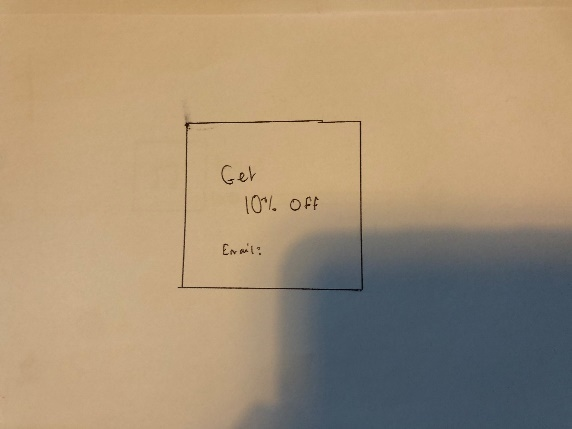 Get
10% off
Email: